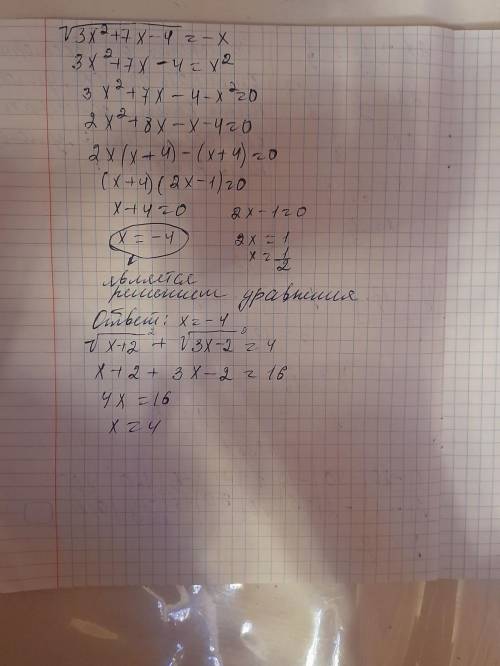 √3x²+7x-4 = -x
3x²+7x-4 = x²
3x²+7x-4-x²=0
2x²+8x-x-4=0
2x(x+4)-(x+4)=0
(x+4)(2x-1)=0
x+4=0 2x-1=0
x=-4 2x=1
x=1/2
является
решением уравнения
Ответ: x=-4
√x+2² + √3x-2² = 4
x+2 + 3x-2 = 16
4x = 16
x = 4